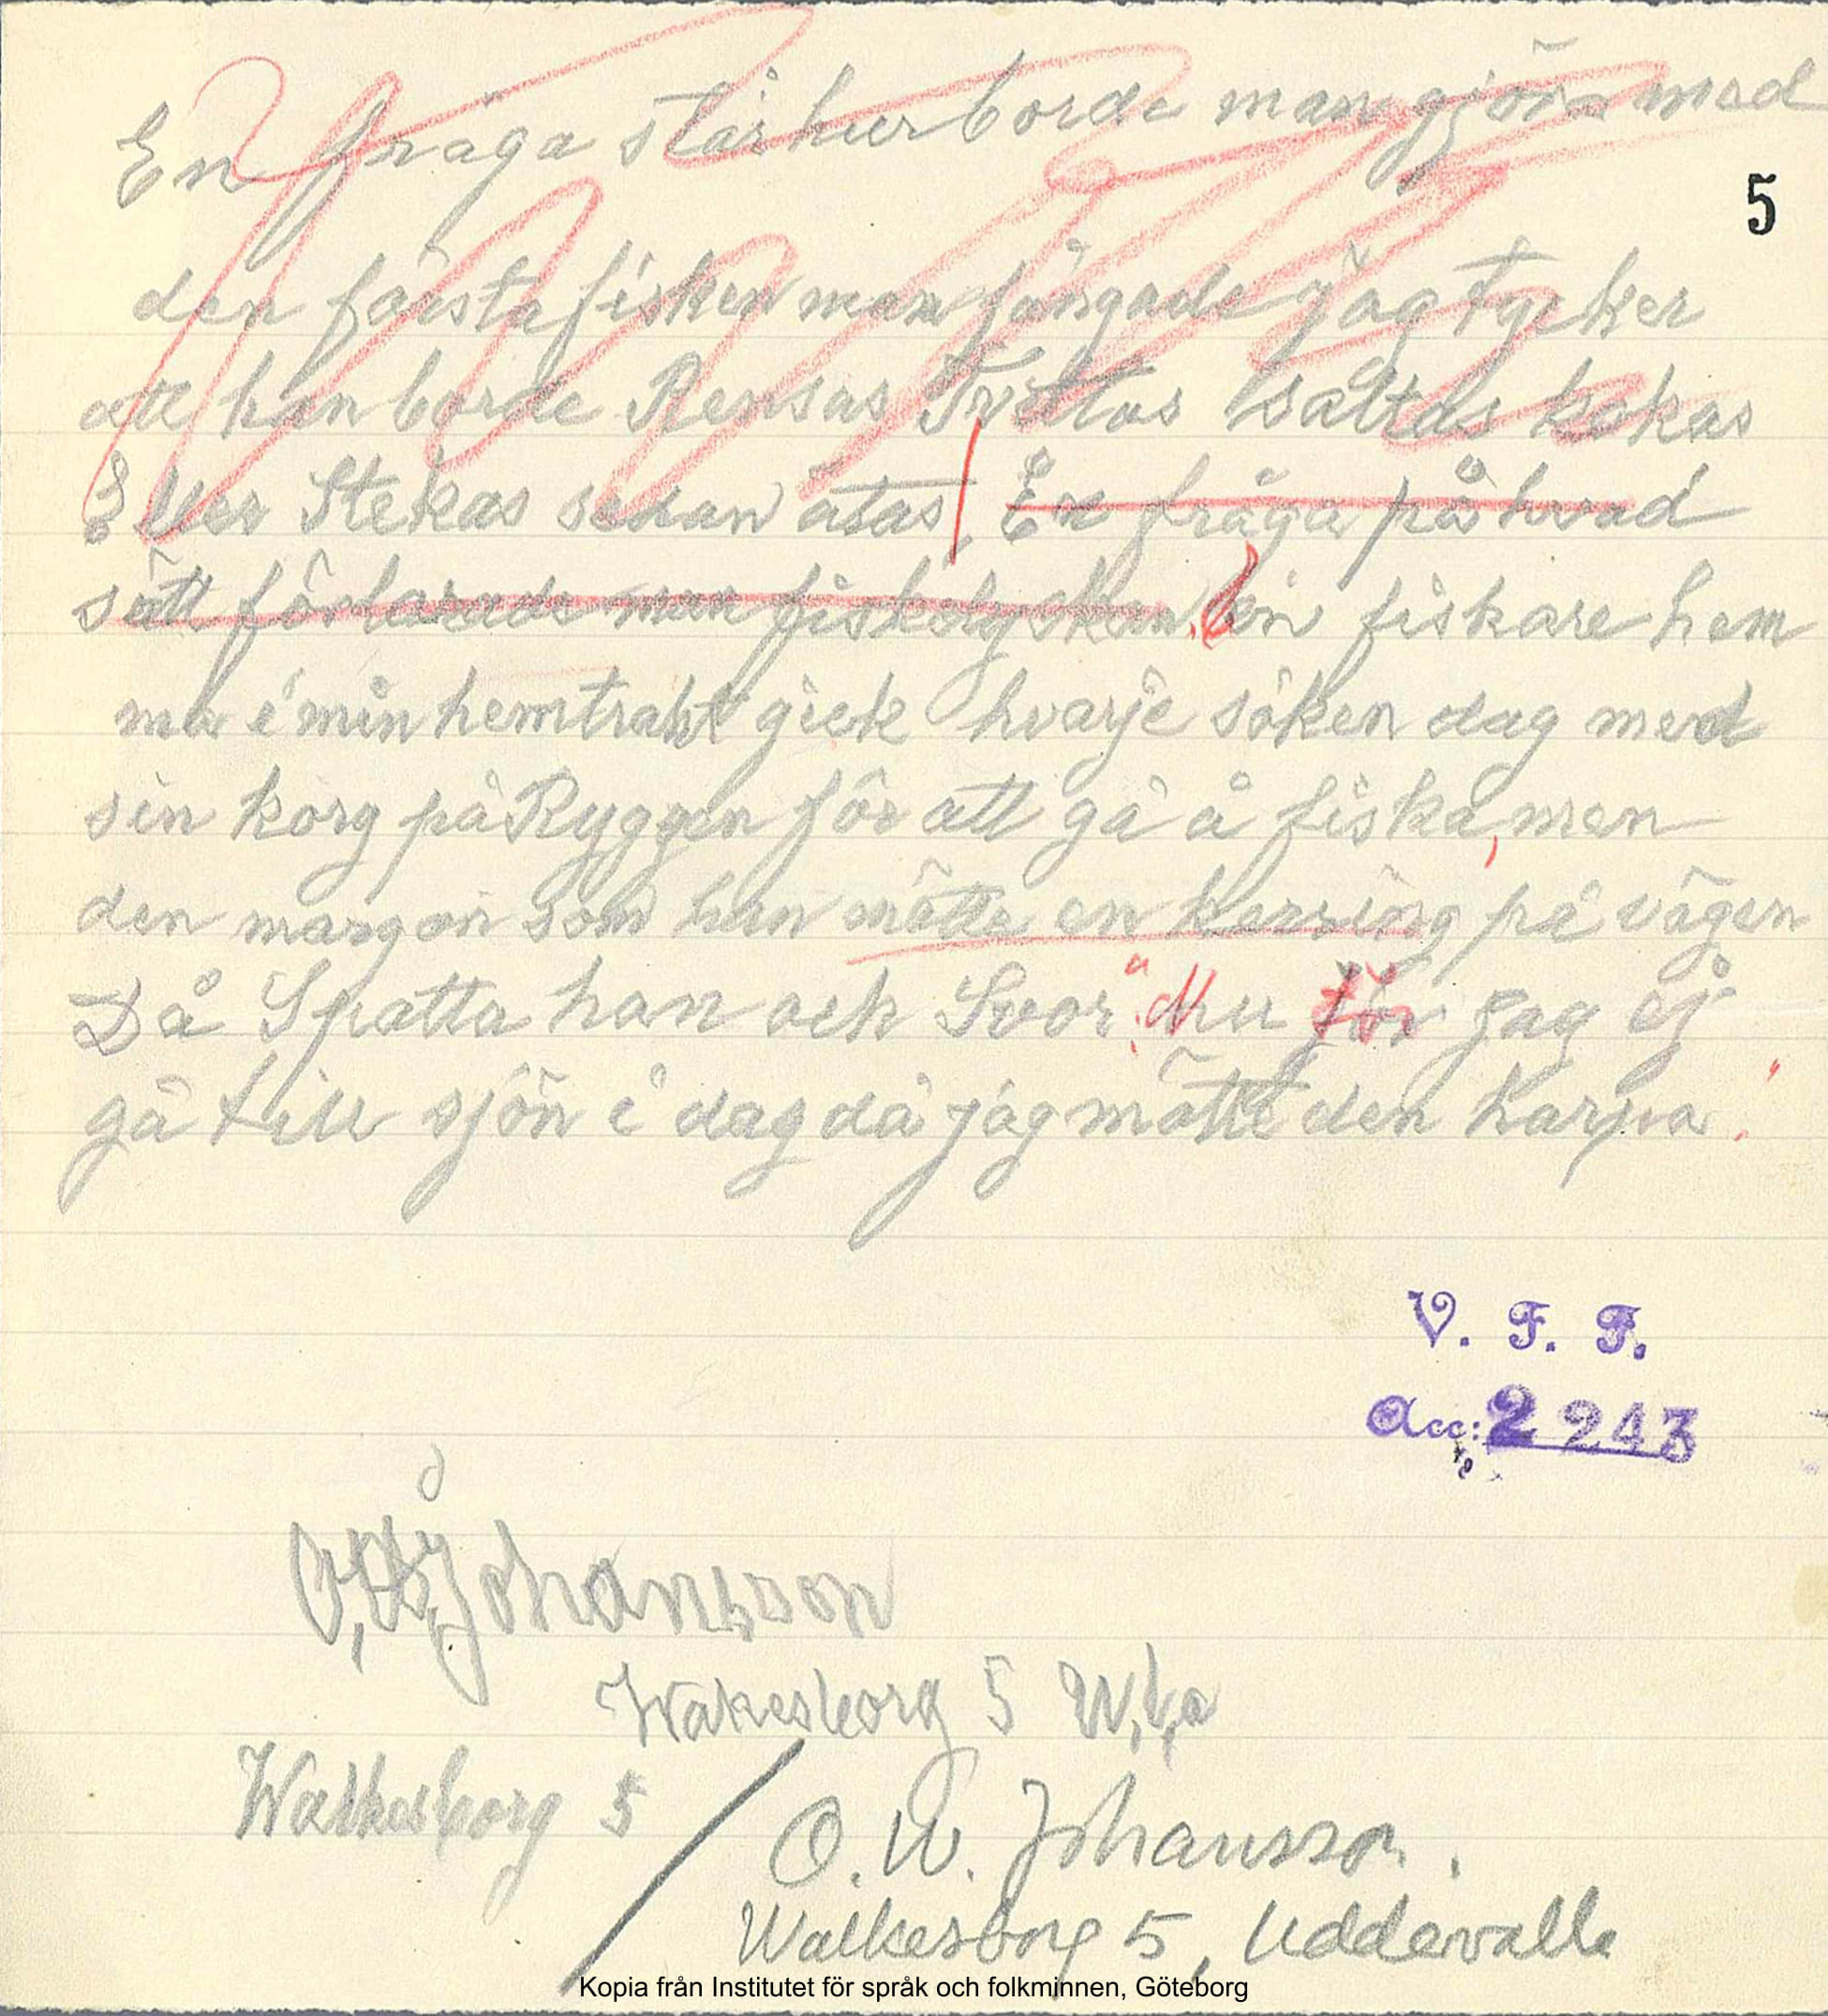 En fråga står hur borde man gjöra med
5
den första fisken man fångade jag tycker
att han borde Rensas Tvettas saltas kokas
Eller Stekas sedan ätas, En fråga på hvad
sätt förklarade man fiskelyckan, En fiskare hem
ma i min hemtrakt gick hvarje söken dag med
sin korg på Ryggen för att gå å fiska, men
den margon som han mötte en kerring på vägen
Då Spotta han och Svor: "Nu tör jag ej
gå till sjön i dag då jag mötte den Karja."
V. F. F.
Acc: 2 243
Johansson
Wakesborg 5
Walkesborg 5
O. W. Johansson.
Walkesborg 5, Uddevalla
Kopia från Institutet för språk och folkminnen, Göteborg